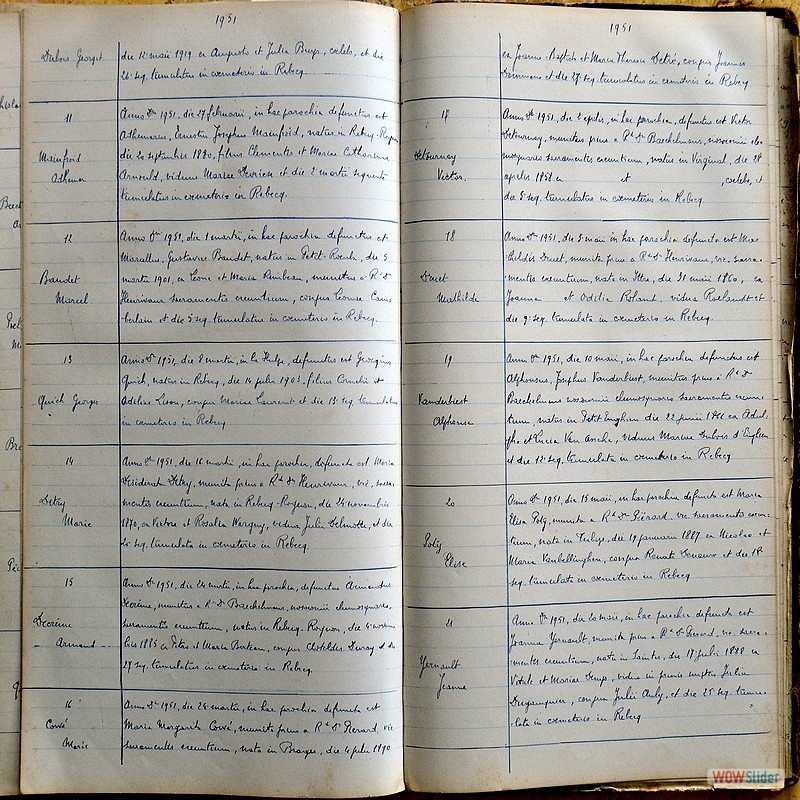 1951
Dubois Georget
die 12 maii 1919 ex Augusto et Julia Buys, cœlebs, et die
seq. tumulatus in cœmeterio in Rebecq
11
Mainfroid
Adhemar
Anno Dni 1951, die 27 februarii, in hac parochia defunctus est
Adhemarus, Ernestus Josephus Mainfroid, natus in Rebecq-Rognon
die 20 septembris 1880, filius Clementis et Mariae Catharinae
Arnould, viduus Mariae et die 2 martii sequenti
tumulatus in cœmeterio in Rebecq.
12
Baudet
Marcel
Anno Dni 1951, die 1 martii, in hac parochia defunctus est
Marcellus, Gustavus Baudet, natus in Petit-Rœulx, die 5
martii 1901, ex Leone et Maria munitus a Rdo Do
Henrivaux sacramentis exeuntium, conjux Leonae
et die 5 seq. tumulatus in cœmeterio in Rebecq.
13
Quich Georges
Anno Dni 1951, die 8 martii, in La Hulpe, defunctus est Georgius
Quich, natus in Rebecq, die 14 julii 1903, filius Cornelii et
Adelinae conjux Mariae Laurent et die 13 seq. tumulatus
in cœmeterio in Rebecq
14
Detry
Marie
Anno Dni 1951, die 16 martii, in hac parochia, defuncta est Maria
Desiderata Detry, munita prius a Rdo Do Henrivaux, vic. sacra-
mentis exeuntium, nata in Rebecq-Rognon, die 24 novembris
1870, ex Victore et Rosalia vidua Julii Delmotte, et die
20 seq. tumulata in cœmeterio in Rebecq
15
Armand
Anno Dni 1951, die 24 martii, in hac parochia, defunctus Armandus
munitus a Rdo Do Baeckelmans, nosocomii elemosynario,
sacramentis exeuntium, natus in Rebecq-Rognon, die 4
1885 ex Petro et Maria conjux Clotildis et die
27 seq. tumulatus in cœmeterio in Rebecq.
16
Marie
Anno Dni 1951, die 28 martii, in hac parochia defuncta est
Maria Margarita munita prius a Rdo Do Pierard, vic
sacramentis exeuntium, nata in die 4 julii 1890
1951
ex Joanne-Baptista et Maria Theresia conjux Joannis
et die 27 seq. tumulatus in cœmeterio in Rebecq
17
Detournay
Victor.
Anno Dni 1951, die 2 aprilis, in hac parochia, defunctus est Victor
Detournay, munitus prius a Rdo Do Baeckelmans, nosocomii ele-
mosynario sacramentis exeuntium, natus in Virginal, die 28
aprilis 1858 ex et , cœlebs, et
die 5 seq. tumulatus in cœmeterio in Rebecq.
18
Duret
Mathilde
Anno Dni 1951, die 5 maii in hac parochia defuncta est Ma-
thildis Duret, munita prius a Rdo Do Henrivaux, vic. sacra-
mentis exeuntium, nata in die 31 maii 1860, ex
Joanne et Odilia Roland, vidua Roelandt et
die 9 seq. tumulata in cœmeterio in Rebecq.
19
Vanderbiest
Alphonse
Anno Dni 1951, die 10 maii, in hac parochia defunctus est
Alphonsus, Josephus Vanderbiest, munitus prius a Rdo Do
Baeckelmans nosocomii elemosynario sacramentis exeun-
tium, natus in Petit Enghien die 22 junii 1866 ex Adol-
pho et Lucia Van viduus Mariae Dubois d'Enghien
et die 12 seq. tumulatus in cœmeterio in Rebecq
20
Elise
Anno Dni 1951, die 15 maii, in hac parochia defuncta est Maria
Elisa munita a Rdo Do Piérard, vic. sacramentis exeun-
tium, nata in Tubize, die 19 januarii 1887 ex Nicolao et
Maria Vanbellinghen, conjux Renati et die 18
seq. tumulata in cœmeterio in Rebecq
21
Yernault
Jeanne
Anno Dni 1951, die 20 maii, in hac parochia defuncta est
Joanna Yernault, munita prius a Rdo Do Pierard, vic. sacra-
mentis exeuntium, nata in Saintes, die 17 julii 1888 ex
Vitale et Maria vidua in primis nuptiis Julii
conjux Julii et die 25 seq. tumu-
lata in cœmeterio in Rebecq
WOWSlider